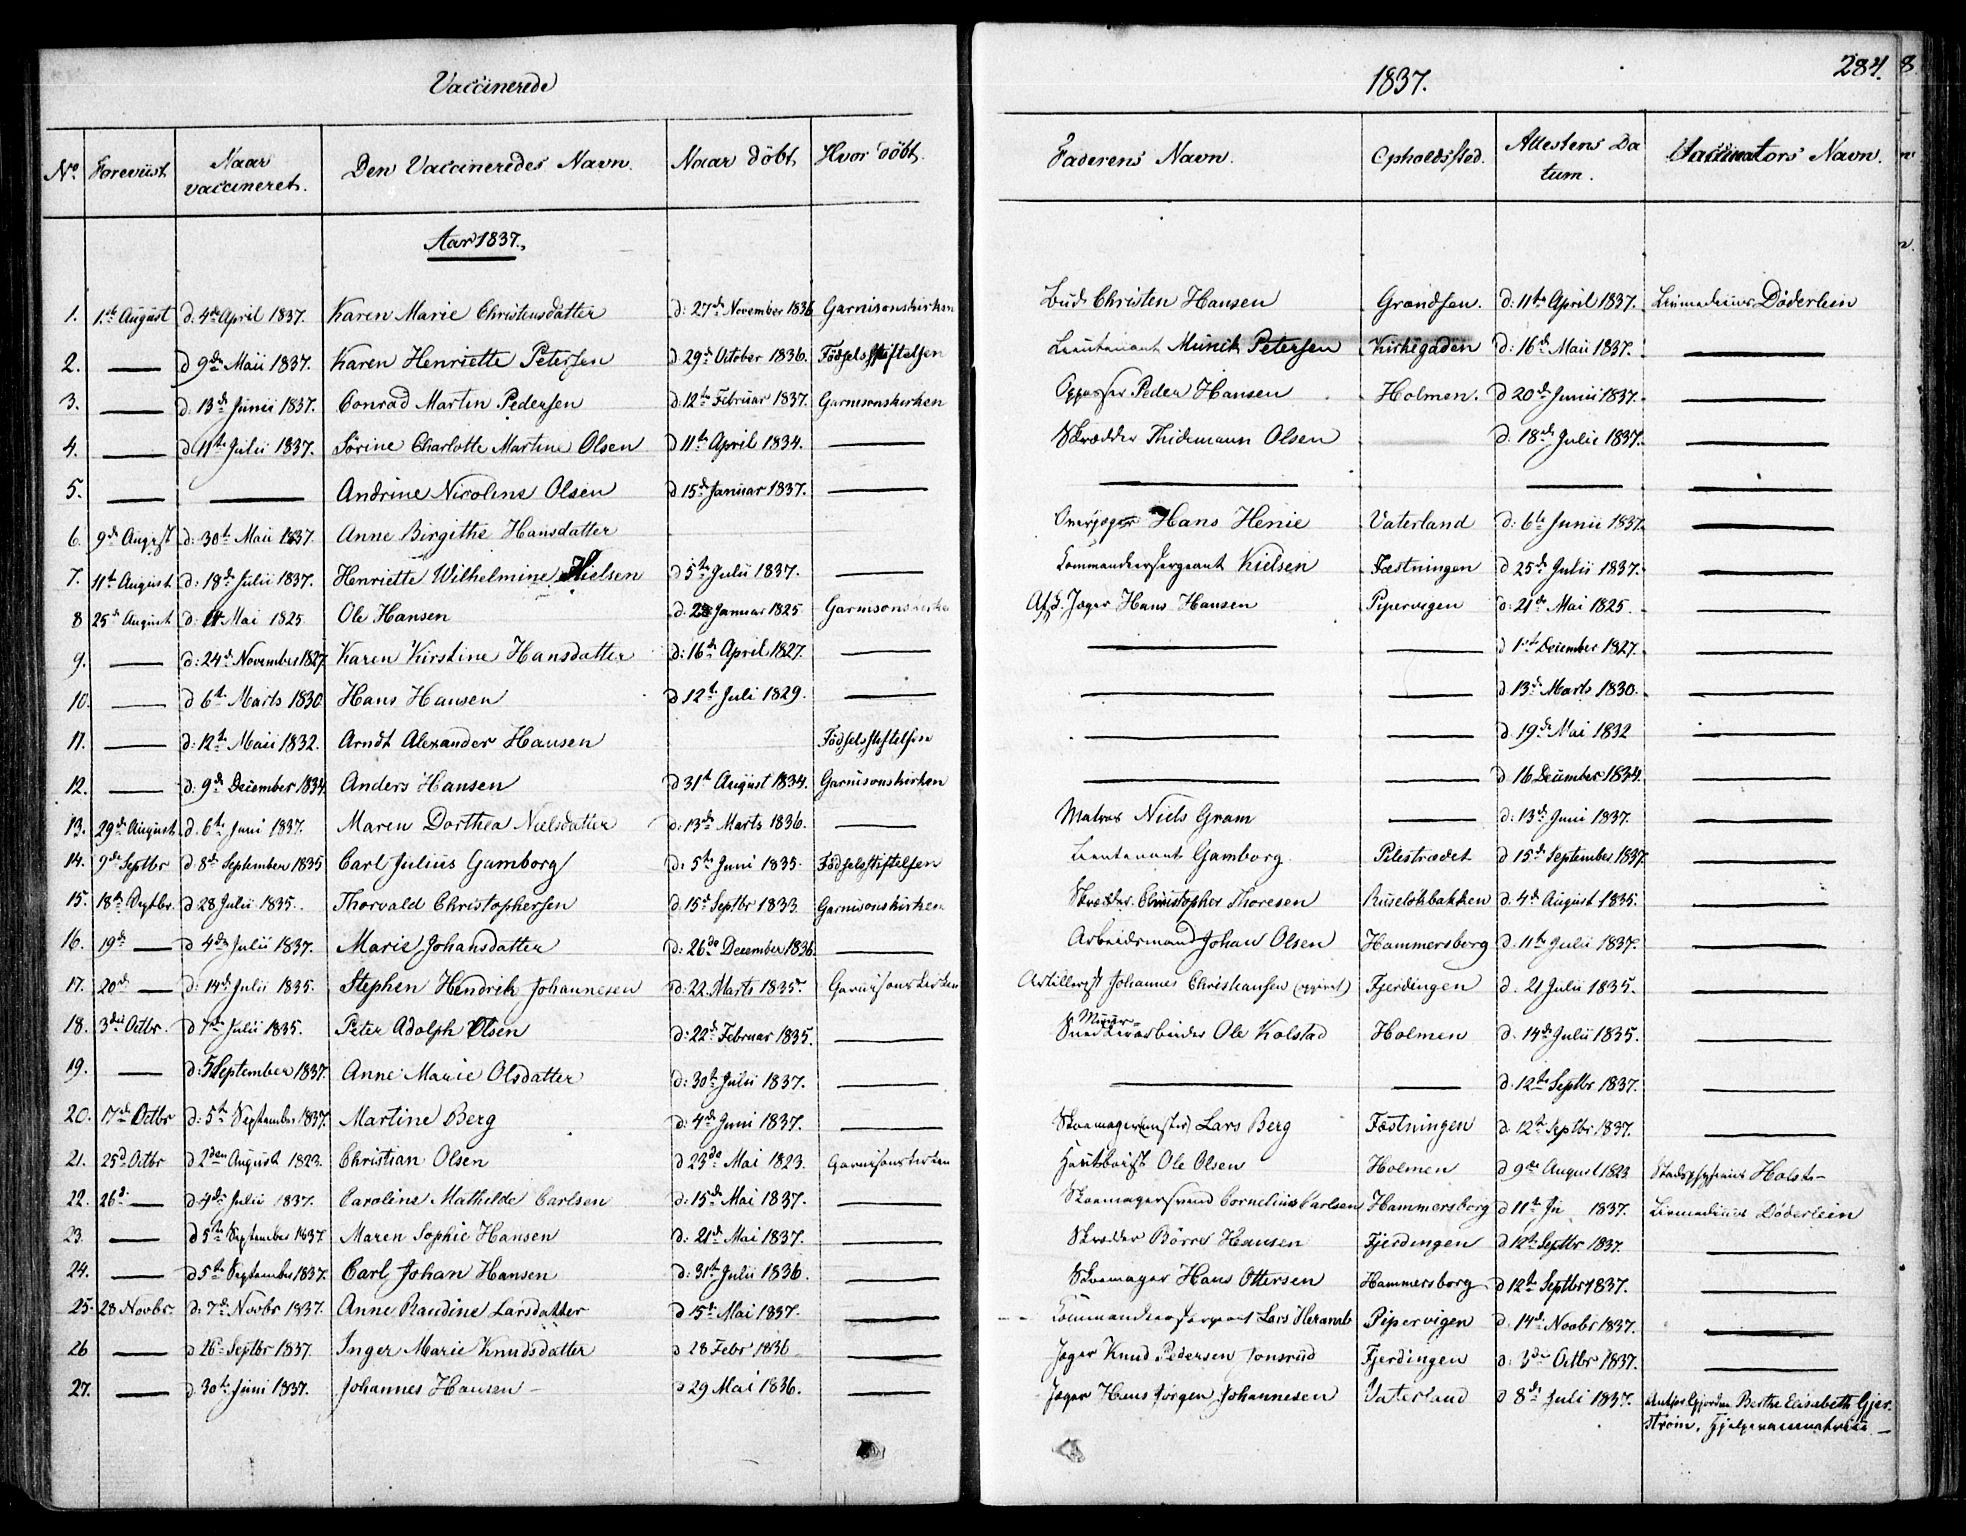 Vaccinerede
1837.
284.
No. Foreviist. Naar vaccineret. Den Vaccineredes Navn. Naar döbt, Hvor döbt. Faderens Navn. Opholdssted. Attestens Datum. Vaccinators Navn.
Aar 1837.
1. 1te August d: 4de April 1837. Karen Marie Christensdatter d: 27de November 1836 Garnisonskirken Bud Christen Hansen Grændsen. d: 11te April 1837. Döderlein
2. — d 9de Maii 1837. Karen Henriette Petersen d 29de October 1836. Födselsstiftelsen Lieutenant Munch Petersen Kirkegaden d: 16de Maii 1837. —
3. — d. 13de Junii 1837. Conrad Martin Pedersen d. 12te Februar 1837. Garnisonskirken Opparser Peder Hansen Holmen. d 20de Junii 1837. —
4. — d 11te Julii 1837. Sörine Charlotte Martine Olsen d 11te April 1834. — Skrædder Thidemann Olsen d. 18de Julie 1837. —
5. — — Andrine Nicoline Olsen d 15de Januar 1837. — — — —
6. 9de August d: 30te Maii 1837. Anne Birgithe Hansdatter Overjæger Hans Henie Vaterland d: 6te Junii 1837. —
7. 11te August d: 18de Julii 1837. Henriette Wilhelmine Kielsen d 5te Julii 1837. — Kommandeersergeant Kielsen Fæstningen d 25de Julii 1837. —
8 25de August d: Mai 1825 Ole Hansen d. Januar 1825 Garnisonskirken Afsk. Jæger Hans Hansen Pipervigen d: 21de Mai 1825. —
9. — d: 24de November 1827. Karen Kirstine Hansdatter d: 16de April 1827. — — — d 1te December 1827. —
10. — d 6te Marts 1830 Hans Hansen d 12te Juli 1829. — — — d 13de Marts 1830. —
11. — d: 12te Maii 1832. Arndt Alexander Hansen Födselsstiftelsen — — d 19de Mai 1832 —
12. — d: 9de December 1834. Anders Hansen d 31te August 1834. Garnisonskirken — — d 16 December 1834. —
13. 29de August d. 6te Juni 1837. Maren Dorthea Nielsdatter d: 13de Marts 1836. — Matros Niels Gram — d: 13de Juni 1837. —
14. 9de Septbr d: 8de September 1835 Carl Julius Gamborg d: 5te Juni 1835. Födselsstiftelsen Lieutenant Gamborg. Pilestrædet d 15de September 1837. —
15. 18de Septbr. d 28 Julii 1835. Thorvald Christophersen d 15de Septbr 1833. Garnisonskirken Skrædder Christopher Thoresen Ruselökbakken d: 4de August 1835. —
16. 19de — d 4de Julii 1837. Marie Johansdatter d: 26de December 1836. — Arbeidsmand Johan Olsen Hammersborg d. 11te Julii 1837. —
17. 20de — d: 14de Julii 1835. Stephen Hendrik Johannesen d: 22. Marts 1835. Garnisonskirken Artillerist Johannes Christiansen Fjerdingen d. 21 Julii 1835. —
18. 3die Octbr. d 7de Julii 1835. Peter Adolph Olsen d: 22de Februar 1835. — Muur Ole Kolstad Holmen d. 14de Julii 1835. —
19. — d: 5 September 1837. Anne Marie Olsdatter d: 30te Julii 1837. — — — d: 12te Septbr 1837. —
20. 17de Octbr d: 5te September 1837. Martine Berg d: 4de Juni 1837. — Skoemager Lars Berg Fæstningen d. 12te Septbr 1837. —
21. 25de Octbr d 2den August 1823. Christian Olsen d 23de Mai 1823. Garnisonskirken Hautboist Ole Olsen Holmen d 9de August 1823 Stadsphysicus Holst
22. 26de — d: 4de Julii 1837. Caroline Mathilde Carlsen d: 15de Mai 1837. — Skoemagersvend Cornelius Carlsen Hammersborg d 11te Ju 1837. Döderlein
23. — d 5te September 1837. Maren Sophie Hansen d: 21de Mai 1837. — Skrædder Börre Hansen Fjerdingen d 12te Septbr 1837. —
24. — d 5te September 1837. Carl Johan Hansen d: 31te Julii 1836. — Skoemager Hans Ottersen Hammersborg d 12te Septbr 1837. —
25. 28 Novbr. d: 7de Novbr 1837. Anne Randine Larsdatter d 15de Mai 1837. — Commandeersergeant Lars Heramb Pipervigen d: 14de Novbr 1837. —
26 — d 26de Septbr 1837. Inger Marie Knudsdatter d 28 Febr 1836 — Jæger Knud Pedersen Fjerdingen d: 3die Octbr 1837. —
27. — d. 30te Juni 1837. Johannes Hansen d 29 Mai 1836. — Jæger Hans Jörgen Johannesen Vaterland d 8de Juli 1837. Berthe Elisabeth Gjer-
ström, Hjelpevaccinatrice —